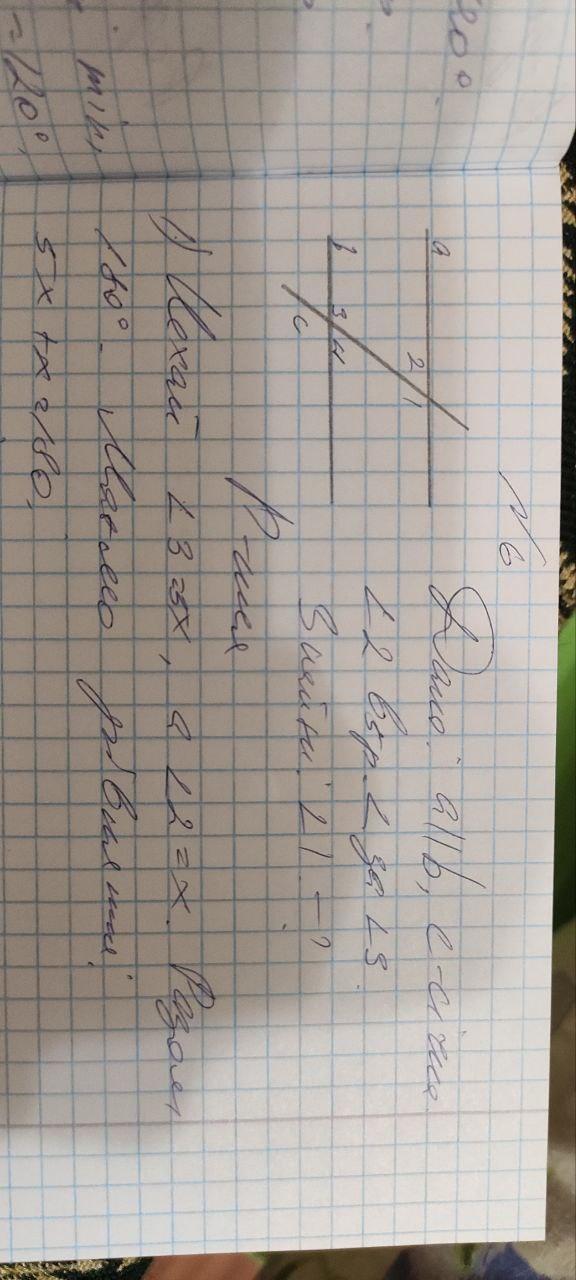 20°
min,
= 120°,
N 6
a
2 1
b
3 4
c
Дано: a||b, c-січна
∠2 в 5 р. < за ∠3.
Знайти: ∠1 - ?
Р-ння
1) Нехай ∠3=5x, а ∠2=x. Разом,
180°. Маємо рівняння:
5x+x=180,